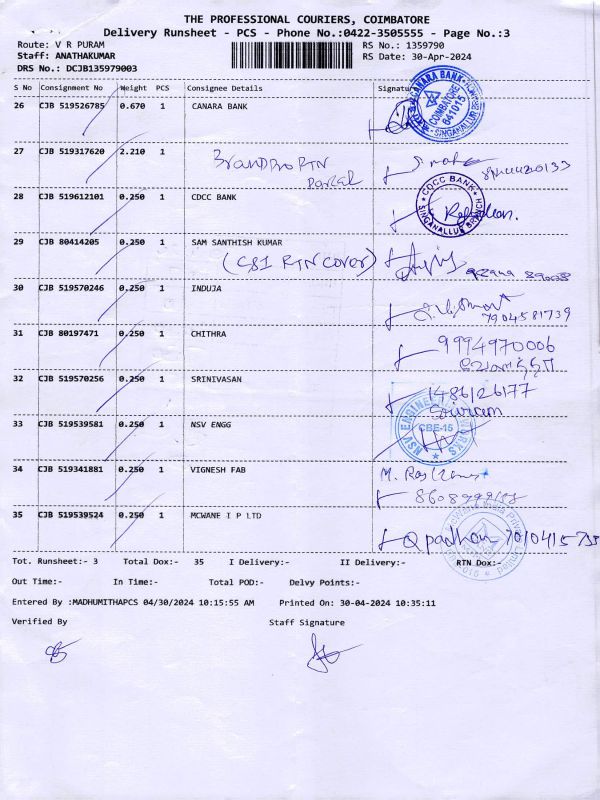 THE PROFESSIONAL COURIERS, COIMBATORE
Delivery Runsheet - PCS - Phone No.:0422-3505555 - Page No.:3
Route: V R PURAM
RS No.: 1359790
Staff: ANATHAKUMAR
RS Date: 30-Apr-2024
DRS No.: DCJB135979003
S No Consignment No Weight PCS Consignee Details Signature
26 CJB 519526785 0.670 1 CANARA BANK
CANARA BANK COIMBATORE 641015 SINGANALLUR
27 CJB 519317620 2.210 1
BrandPro RTN
Parcel
28 CJB 519612101 0.250 1 CDCC BANK
CDCC BANK SINGANALLUR BRANCH
29 CJB 80414205 0.250 1 SAM SANTHISH KUMAR
(SBI RTN COVER)
30 CJB 519570246 0.250 1 INDUJA
7904581739
31 CJB 80197471 0.250 1 CHITHRA
9994970006
32 CJB 519570256 0.250 1 SRINIVASAN
33 CJB 519539581 0.250 1 NSV ENGG
NSV ENGINEERING WORKS CBE-15
34 CJB 519341881 0.250 1 VIGNESH FAB
35 CJB 519539524 0.250 1 MCWANE I P LTD
Tot. Runsheet:- 3 Total Dox:- 35 I Delivery:- II Delivery:- RTN Dox:-
Out Time:- In Time:- Total POD:- Delvy Points:-
Entered By :MADHUMITHAPCS 04/30/2024 10:15:55 AM Printed On: 30-04-2024 10:35:11
Verified By Staff Signature